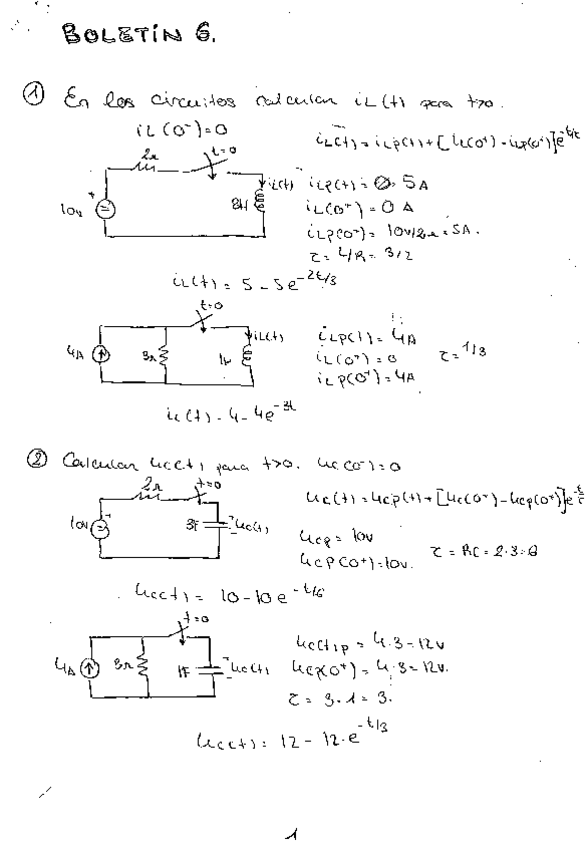 BOLETÍN 6.
① En los circuitos calcular iL(t) para t>0.
iL(0⁻)=0
iL(t) = iLp(t) + [iL(0⁺) - iLp(0⁺)]e^-t/τ
2Ω
t=0
10v
iL(t)
iLp(t) = 5A
iL(0⁺) = 0 A
iLp(0⁺) = 10v/2Ω = 5A.
τ = L/R = 3/2
iL(t) = 5 - 5e^-2t/3
t=0
4A
3Ω
iL(t)
iLp(t) = 4A
iL(0⁺) = 0
iLp(0⁺) = 4A
τ = 1/3
iL(t) = 4 - 4e^-3t
② Calcular uc(t) para t>0. uc(0⁻)=0
2Ω
t=0
10v
3F
uc(t)
uc(t) = ucp(t) + [uc(0⁺) - ucp(0⁺)]e^-t/τ
ucp = 10v
ucp(0⁺) = 10v.
τ = RC = 2·3 = 6
uc(t) = 10 - 10e^-t/6
t=0
4A
3Ω
1F
uc(t)
uc(t)p = 4·3 = 12v
ucp(0⁺) = 4·3 = 12v.
τ = 3·1 = 3.
uc(t) = 12 - 12·e^-t/3
1